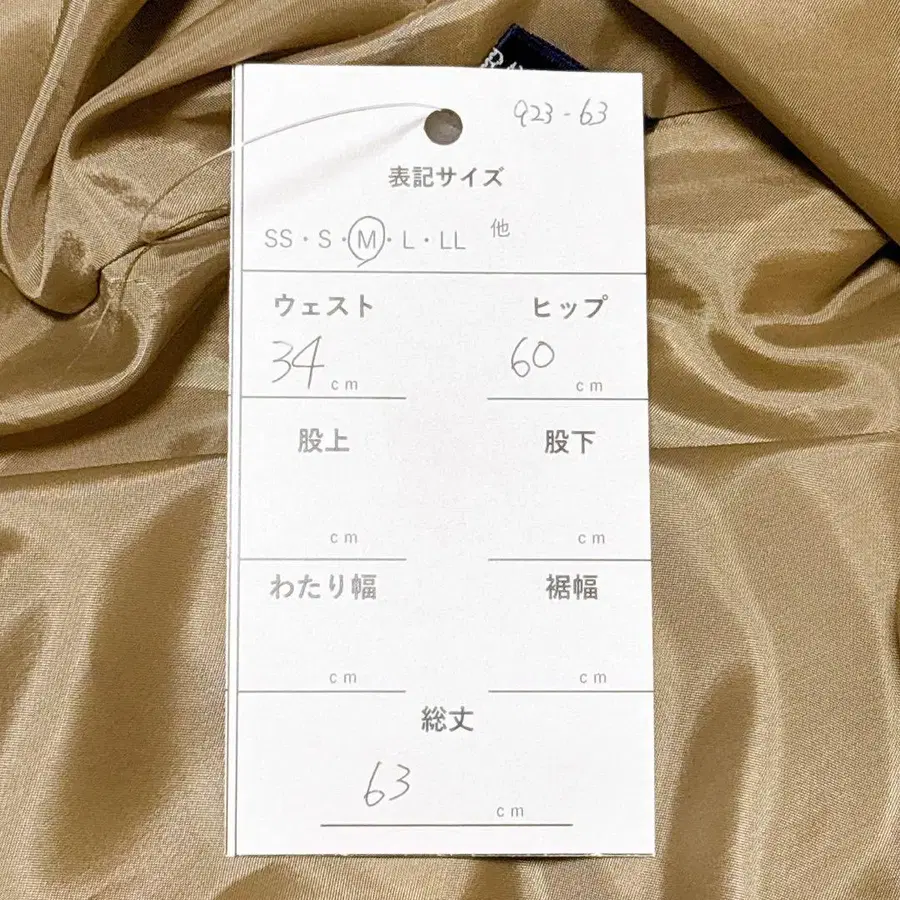 923-63
表記サイズ
SS・S・M・L・LL 他
ウェスト ヒップ
34 cm 60 cm
股上 股下
cm cm
わたり幅 裾幅
cm cm
総丈
63 cm